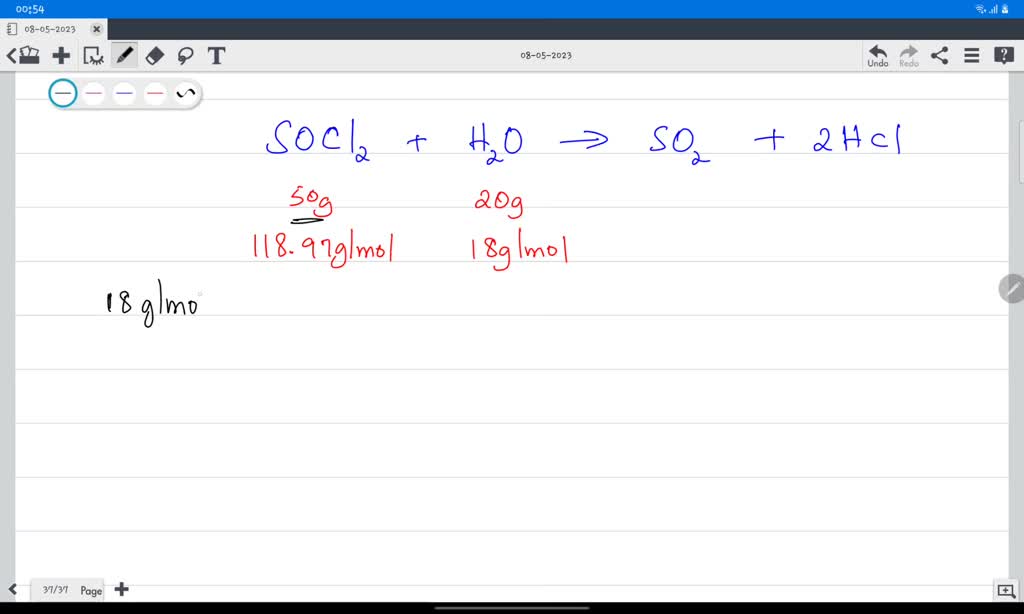 00:54
08-05-2023
T
08-05-2023
Undo
Redo
SOCl₂ + H₂O → SO₂ + 2HCl
50g 20g
118.97g/mol 18g/mol
18g/mo
37/37 Page